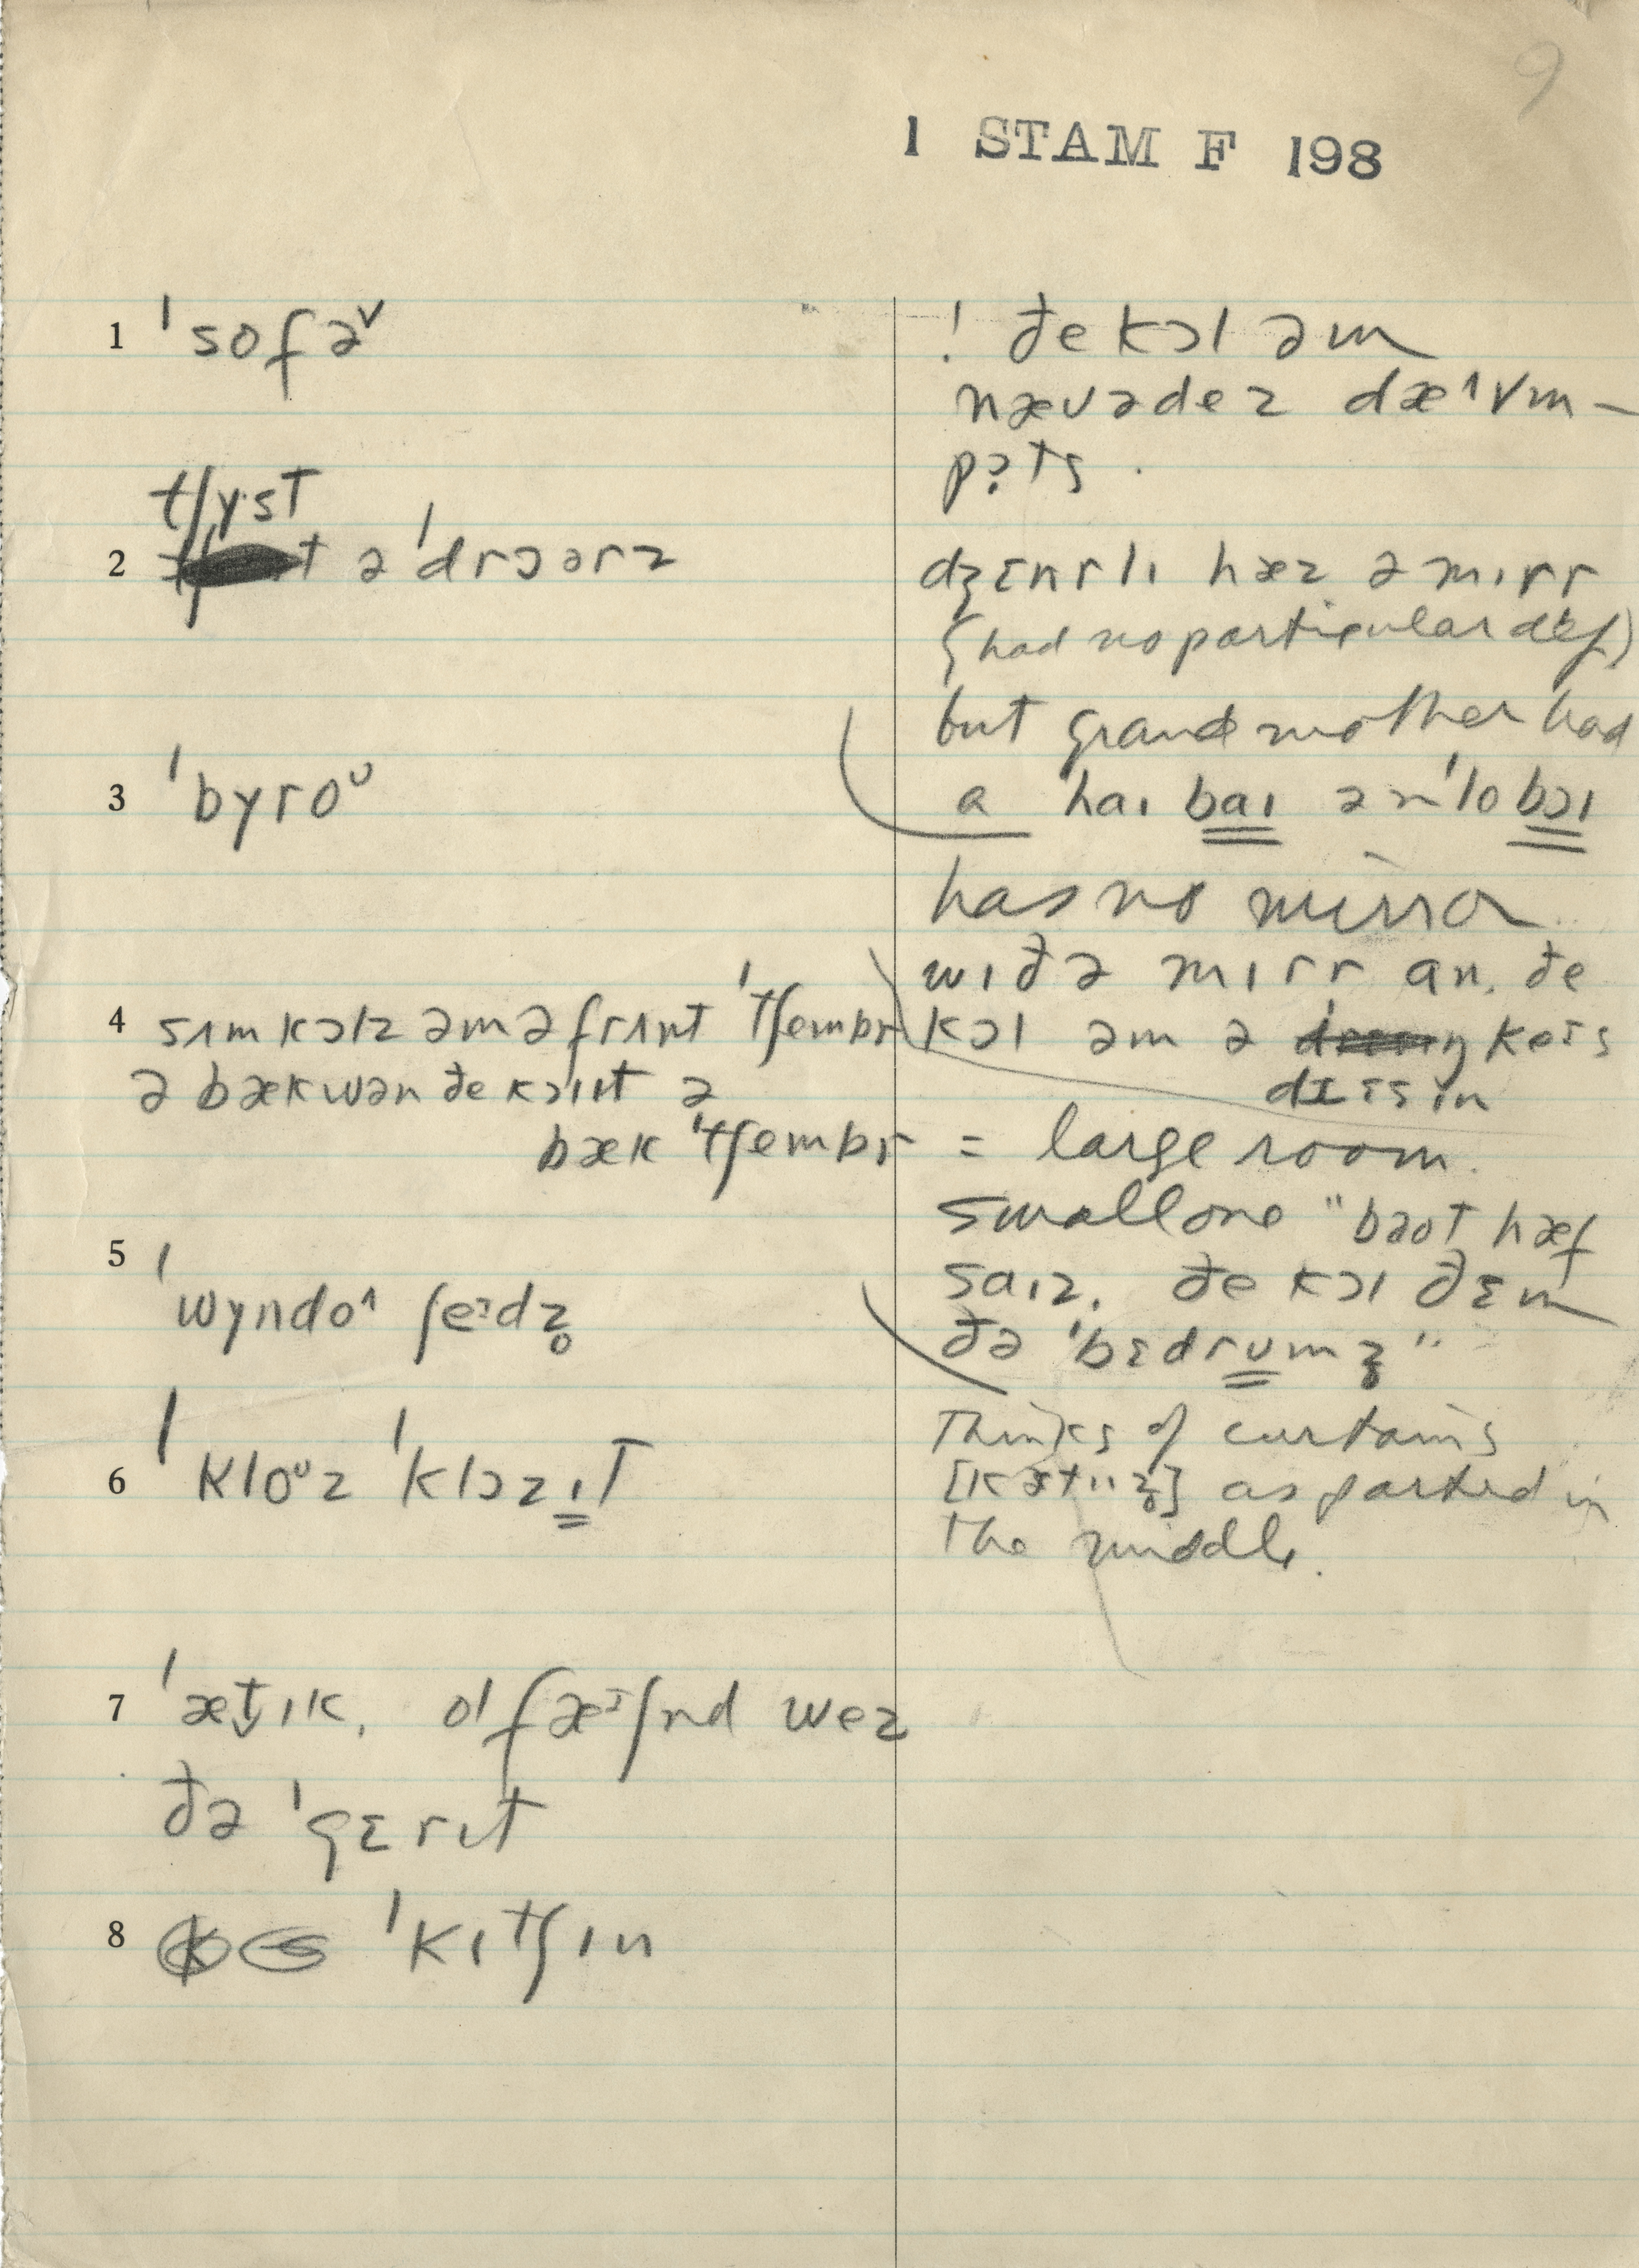 9
1 STAM F 198
1 ˈsofə˅
2 tʃyst
ə ˈdrɔərz
3 ˈbyroᶷ
4 sʌmkɔlz əm ə frʌnt ˈtʃembr
ə bækwən ðe kɔlɪt ə
bæk ˈtʃembr
5 ˈwyndo˄ ʃeᵊdz̥
6 ˈkloᶷz ˈklɔzɪt
7 ˈæt̬ɪk. ol fæᵊʃnd wez
ðə ˈgɛrɪt
8 ˈkɪtʃɪn
! ðe kɔl əm
nævədez dæ˄vm-
pɔts.
dʒɛnrlɪ hæz ə mɪrr
(had no particular def)
but grandmother had
a haɪ baɪ ən ˈlo bɔɪ
has no mirror
wɪð ə mɪrr an. ðe
kɔl əm ə
dɛɪsɪn
= large room.
small one "baot hæf
saɪz. ðe kɔl ðɛm
ðə ˈbɛdrumz̥"
Thinks of curtains
as parted in
the middle.